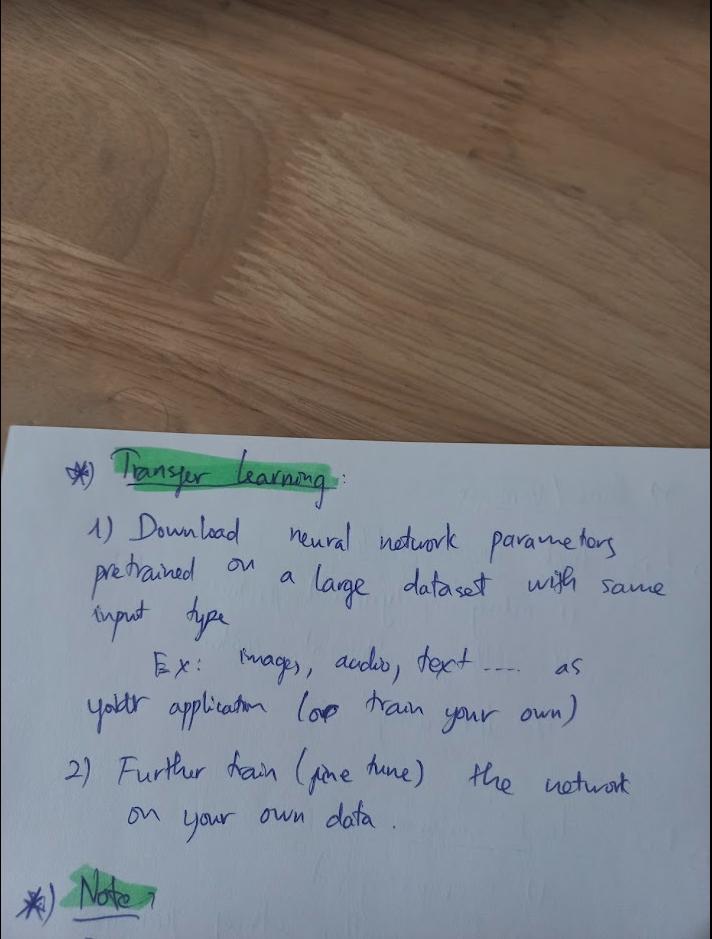 *) Transfer learning:
1) Download neural network parameters
pretrained on a large dataset with same
input type
Ex: images, audio, text .... as
your application (or train your own)
2) Further train (fine tune) the network
on your own data.
*) Note